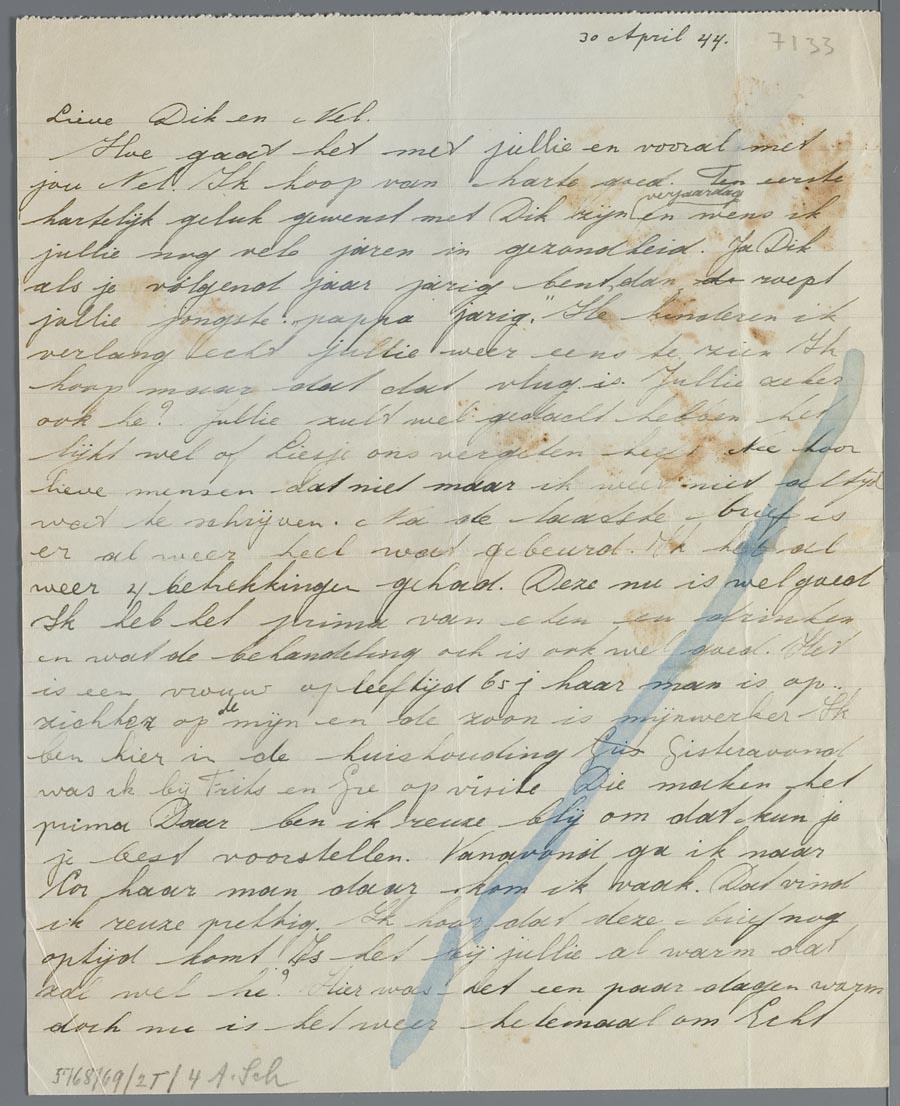 30 April 44.
7133
Lieve Dik en Nel.
Hoe gaat het met jullie en vooral met
jou Nel. Ik hoop van harte goed. Ten eerste
verjaardag
hartelijk geluk gewenst met Dik zijn en wens ik
jullie nog vele jaren in gezondheid. Ja Dik
als je volgend jaar jarig bent, dan roept
jullie jongste "pappa jarig." He kinderen ik
verlang echt jullie weer eens te zien Ik
hoop maar dat dat vlug is. Jullie zeker
ook he? Jullie zult wel gedacht hebben het
lijkt wel of Liesje ons vergeten heeft Nee hoor
lieve mensen dat niet maar ik weet niet altijd
wat te schrijven. Na de laatste brief is
er al weer heel wat gebeurd. Ik heb al
weer 4 betrekkingen gehad. Deze nu is wel goed
Ik heb het prima van eten en drinken
en wat de behandeling och is ook wel goed. Het
is een vrouw op leeftijd 65 j haar man is op-
zichter op de mijn en de zoon is mijnwerker Ik
ben hier in de huishouding Gisteravond
was ik bij Frits en Gre op visite Die maken het
prima Daar ben ik reuze blij om dat kun je
je best voorstellen. Vanavond ga ik naar
Cor haar man daar kom ik vaak. Dat vind
ik reuze prettig. Ik hoop dat deze brief nog
optijd komt Is het bij jullie al warm dat
zal wel hè? Hier was het een paar dagen warm
doch nu is het weer helemaal om Echt
5768/69/2T/4 A. Sch